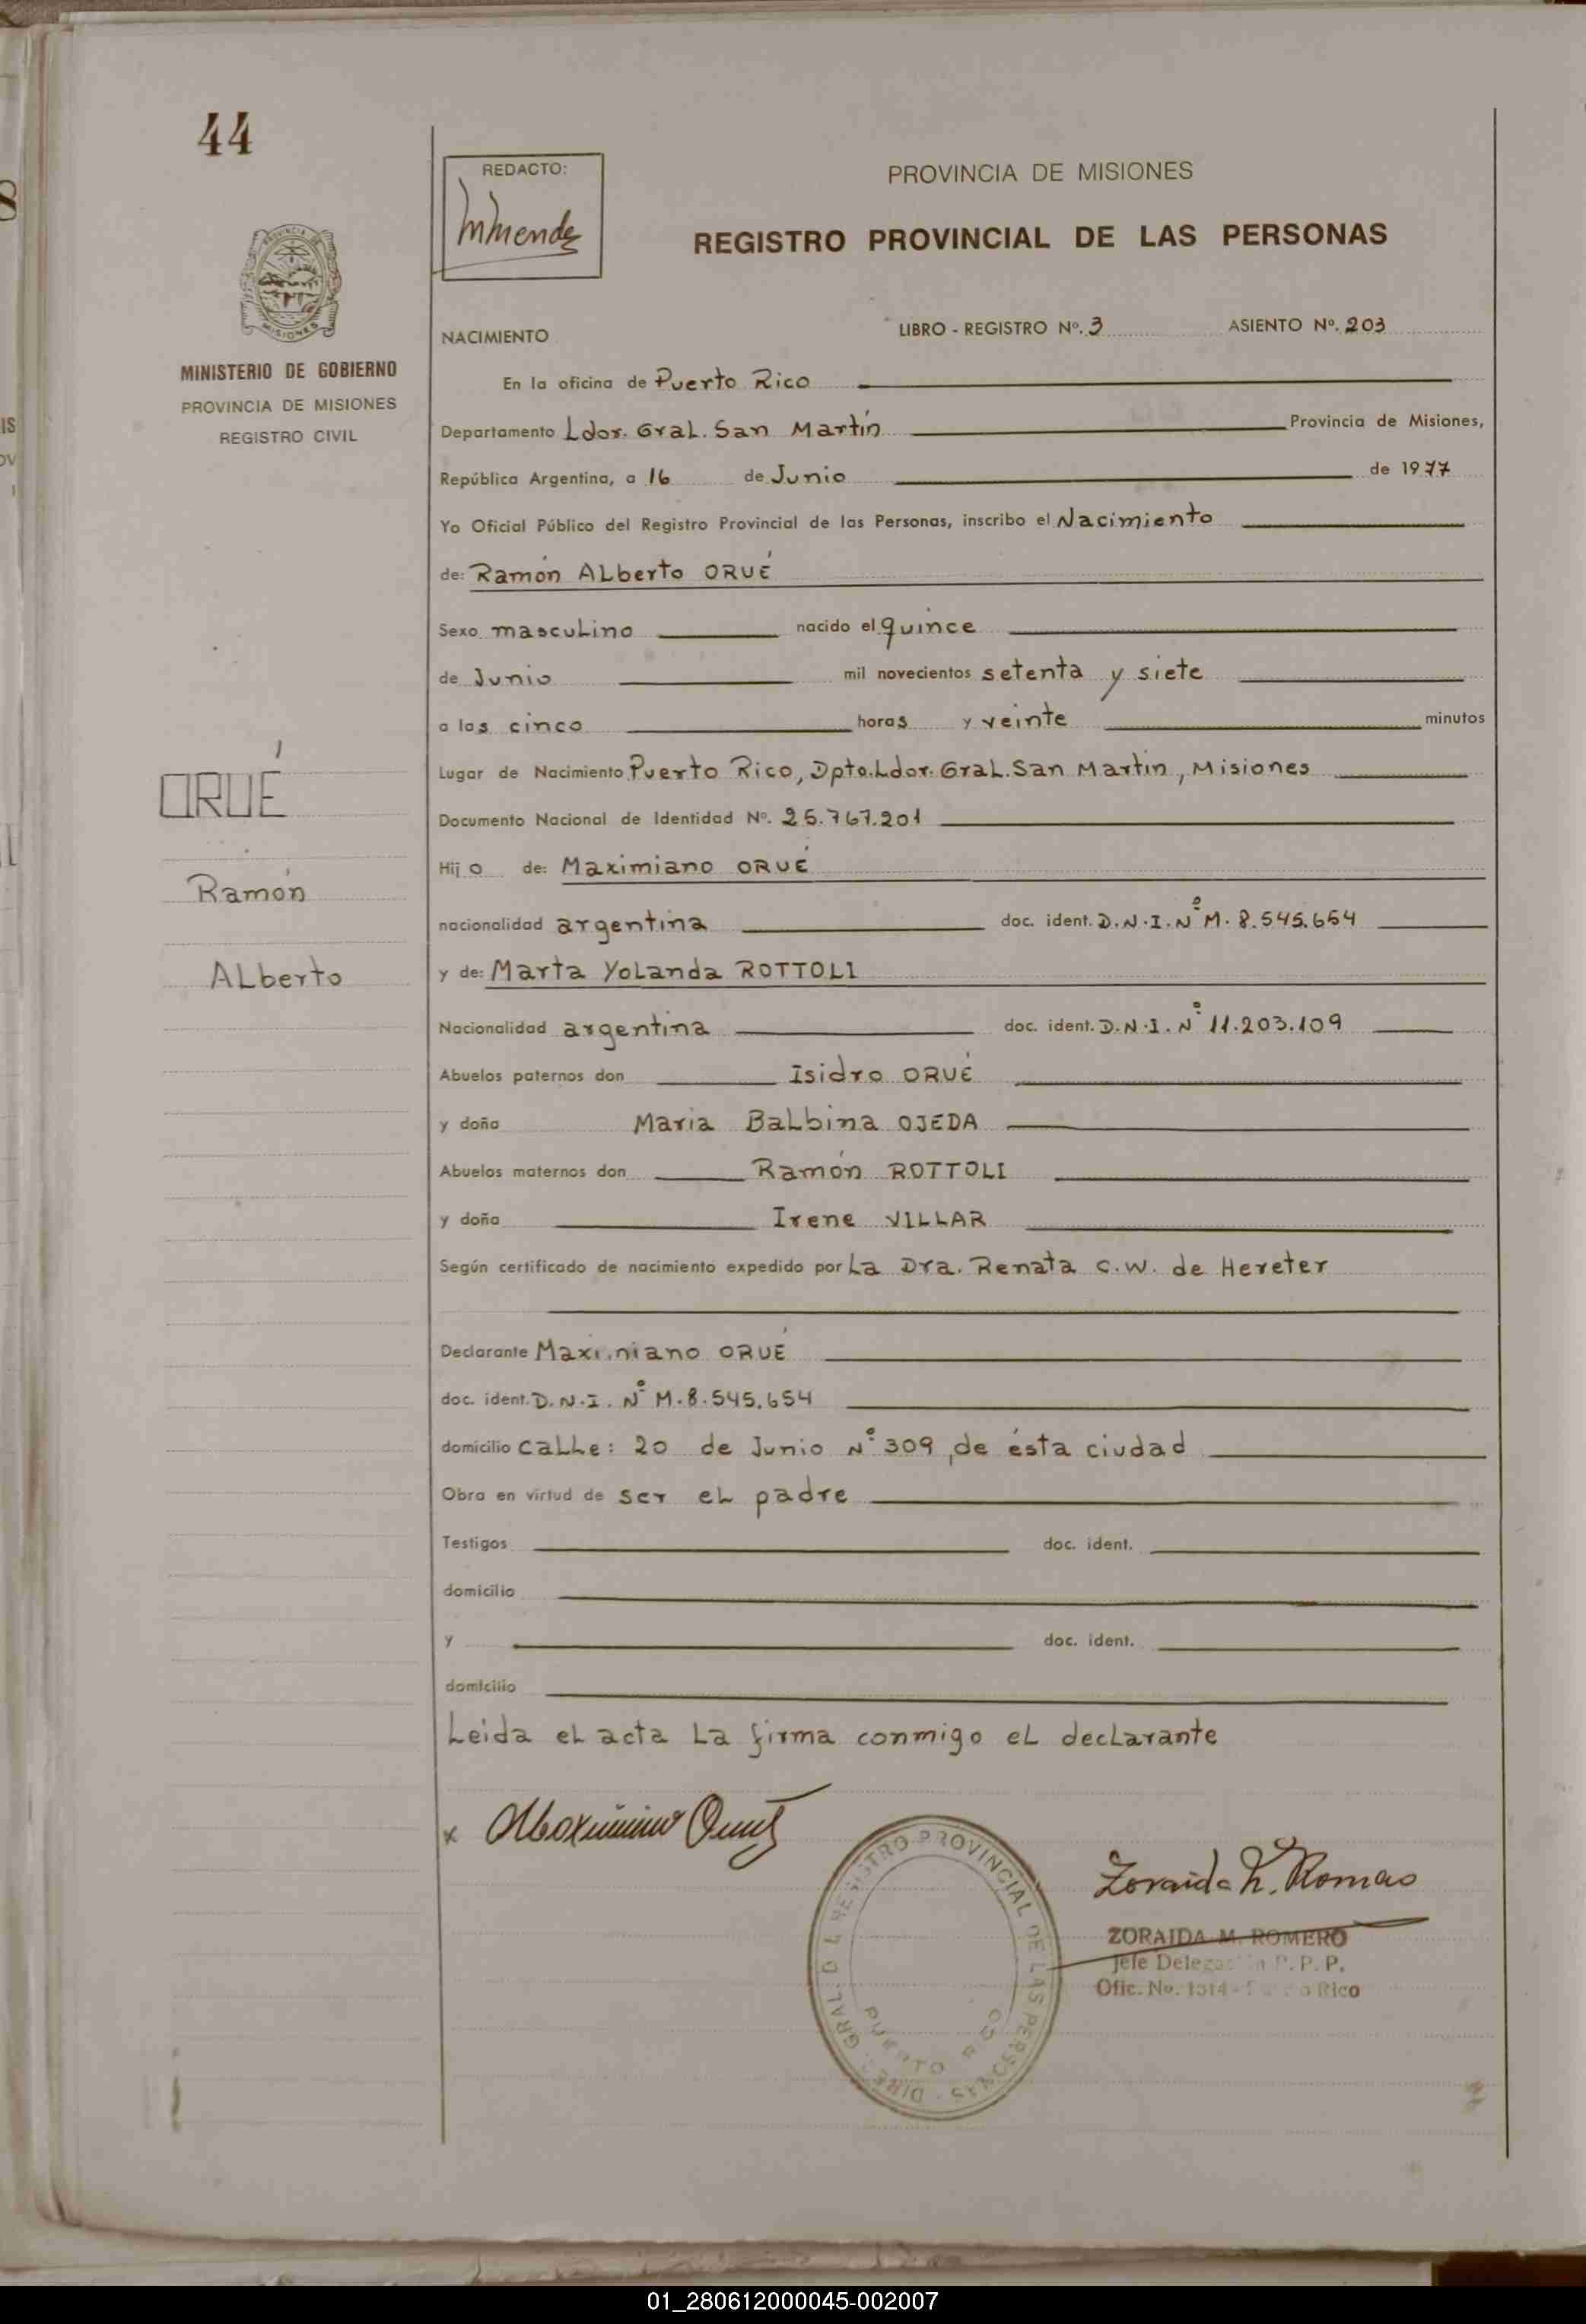 44
REDACTO:
PROVINCIA DE MISIONES
REGISTRO PROVINCIAL DE LAS PERSONAS
MISIONES
MINISTERIO DE GOBIERNO
PROVINCIA DE MISIONES
REGISTRO CIVIL
NACIMIENTO LIBRO - REGISTRO Nº. 3 ASIENTO Nº. 203
En la oficina de Puerto Rico
Departamento Ldor. Gral. San Martín Provincia de Misiones,
República Argentina, a 16 de Junio de 1977
Yo Oficial Público del Registro Provincial de las Personas, inscribo el Nacimiento
de: Ramón Alberto ORUÉ
Sexo masculino nacido el quince
de Junio mil novecientos setenta y siete
a las cinco horas y veinte minutos
Lugar de Nacimiento Puerto Rico, Dpto. Ldor. Gral. San Martín, Misiones
Documento Nacional de Identidad Nº. 25.767.201
Hijo de: Maximiano ORUÉ
nacionalidad argentina doc. ident. D.N.I. Nº M. 8.545.654
y de: Marta Yolanda ROTTOLI
Nacionalidad argentina doc. ident. D.N.I. Nº 11.203.109
Abuelos paternos don Isidro ORUÉ
y doña Maria Balbina OJEDA
Abuelos maternos don Ramón ROTTOLI
y doña Irene VILLAR
Según certificado de nacimiento expedido por La Dra. Renata C.W. de Hereter
Declarante Maximiano ORUÉ
doc. ident. D.N.I. Nº M.8.545.654
domicilio Calle: 20 de Junio Nº 309, de ésta ciudad
Obra en virtud de ser el padre
Testigos doc. ident.
domicilio
y doc. ident.
domicilio
Leida el acta La firma conmigo el declarante
ORUÉ
Ramón
Alberto
x Maximiano Orué
DIREC. GRAL. DEL REGISTRO PROVINCIAL DE LAS PERSONAS
PUERTO RICO
Zoraida M. Romero
ZORAIDA M. ROMERO
Jefe Delegación R. P. P.
Ofic. No. 1314 - Puerto Rico
01_280612000045-002007